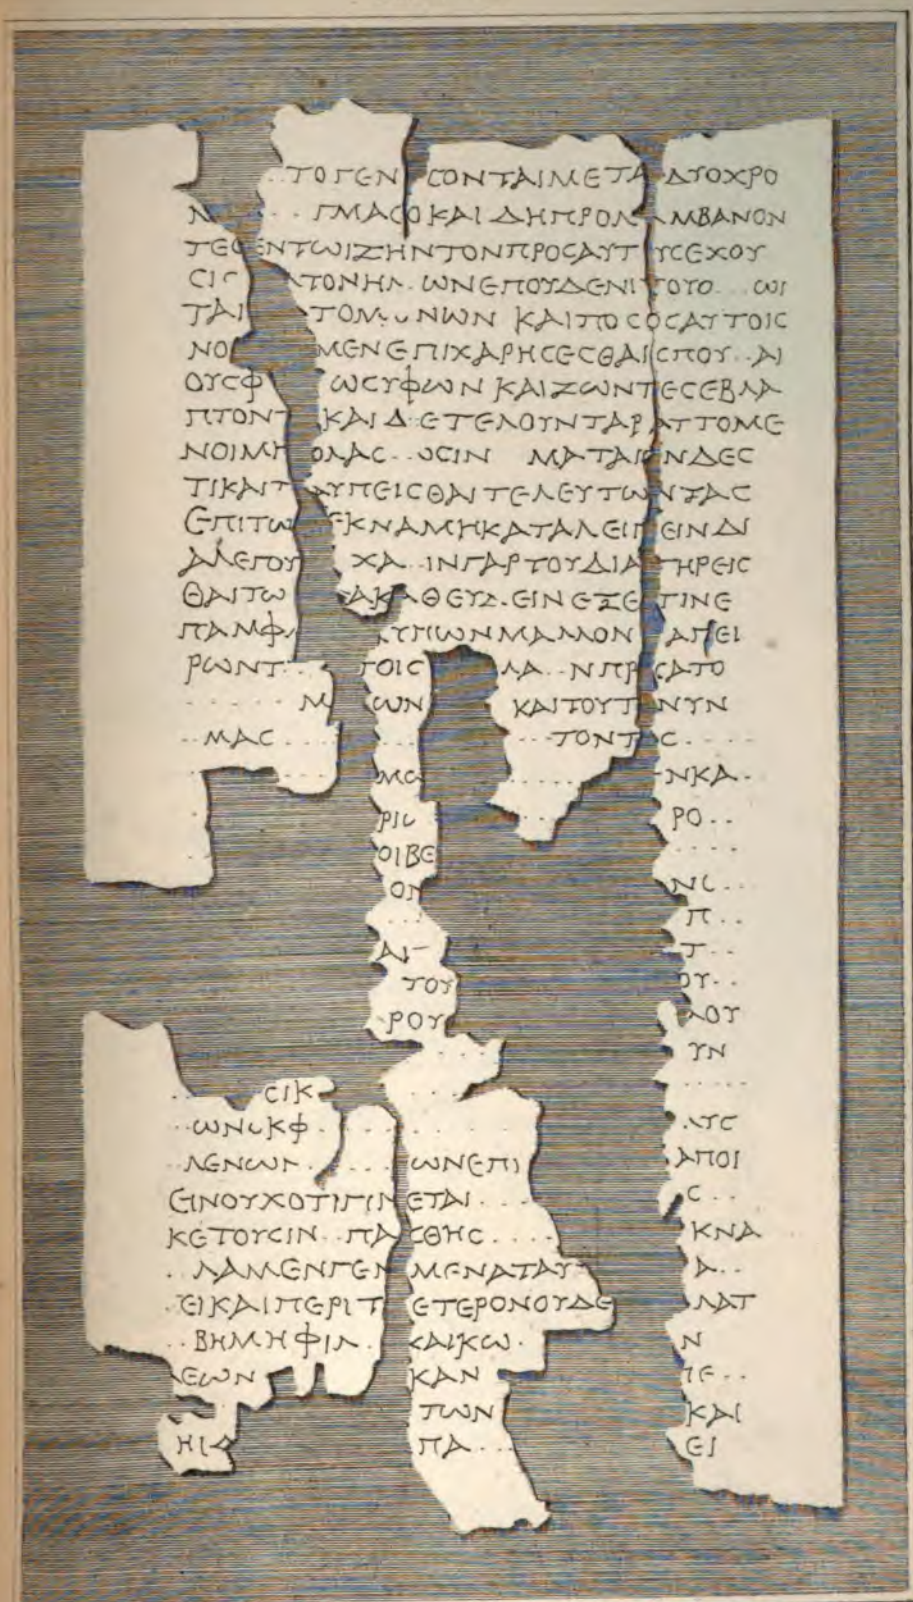 ..ΤΟΓΕΝ ΣΟΝΤΑΙΜΕΤΑ ΔΥΟΧΡΟ
Ν ... ΓΜΑϹΟΚΑΙΔΗΠΡΟΛ ΜΒΑΝΟΝ
ΤΕϹΕΝΤΩΙΖΗΝΤΟΝΠΡΟϹΑΥΤ ΥϹΕΧΟΥ
ϹΙϹ ΑΤΟΝΗΛ.ΩΝΕΠΟΥΔΕΝΙ ΤΟΥΟ...ΩΙ
ΤΑΙ ΤΟΜ.ΩΝΩΝ ΚΑΙΠΟϹΟϹΑΥΤΟΙϹ
ΝΟ ΜΕΝΕΠΙΧΑΡΗϹΕϹΘΑΙ ϹΠΟΥ..ΑΙ
ΟΥϹΦ ΩϹΥΦΩΝΚΑΙΖΩΝΤΕϹΕΒΛΑ
ΠΤΟΝΤ ΚΑΙΔ.ΕΤΕΛΟΥΝΤΑΡΑΤΤΟΜΕ
ΝΟΙΜΗ ΟΛΑϹ..ΩϹΙΝ ΜΑΤΑΙΟΝΔΕϹ
ΤΙΚΑΙΤ ΛΥΠΕΙϹΘΑΙΤΕΛΕΥΤΩΝΤΑϹ
ΕΠΙΤΩ ΕΚΝΑΜΗΚΑΤΑΛΕΙΠΕΙΝΔΙ
ΑΛΕΠΟΥ ΧΑ.ΙΝΓΑΡΤΟΥΔΙΑ ΤΗΡΕΙϹ
ΘΑΙΤΩ ΑΚΑΘΕΥΔ.ΕΙΝΕΞΕ ΤΙΝΕ
ΠΑΜΦ ΛΥΠΩΝΜΑΛΛΟΝ ΑΠΕΙ
ΡΩΝΤ... ΤΟΙϹ ΛΑ..ΝΠΡ ϹΑΤΟ
......Μ ΩΝ ΚΑΙΤΟΥΤ ΝΥΝ
..ΜΑϹ.... ... ..ΤΟΝΤ Ϲ.....
ΜΩ ...... ΝΚΑ.
ΡΙ ΡΟ..
ΟΙΒΕ ....
ΟΝ ΝϹ..
.. Π..
ΑΙ Τ..
ΤΟΥ ΟΥ..
ΡΟΥ ΛΟΥ
.... ΥΝ
. ...ϹΙΚ .... .....
..ΩΝΟΚΦ . ..... .ΥϹ
.ΛΕΝΩΝ..... ΩΝΕΠΙ ΑΠΟΙ
ΕΙΝΟΥΧΟΤΙΓΙΝ ΕΤΑΙ.... Ϲ..
ΚΕΤΟΥϹΙΝ..ΠΑ ϹΘΗϹ.... ΚΝΑ
..ΛΑΜΕΝΓΕΝ ΜΕΝΑΤΑΥ Α..
.ΕΙΚΑΙΠΕΡΙΤ ΕΤΕΡΟΝΟΥΔΕ ΛΑΤ
..ΒΗΜΗΦΙΛ. ΚΑΙΚΩ. Ν
ΕΩΝ ΚΑΝ ΠΕ..
ΤΩΝ ΚΑΙ
ΗΙ ΠΑ... ΕΙ